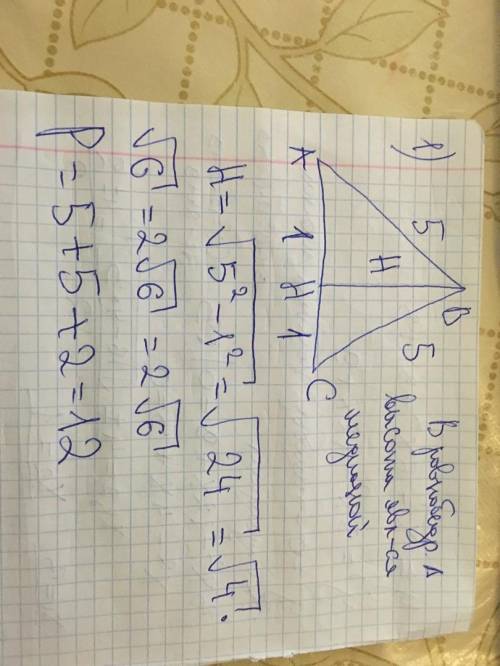 1)
B
5
5
H
A
1
H
1
C
В равнобедр. Δ
высота явл-ся
медианой
H = √5² - 1² = √24 = √4 ·
√6 = 2√6 = 2√6
P = 5 + 5 + 2 = 12